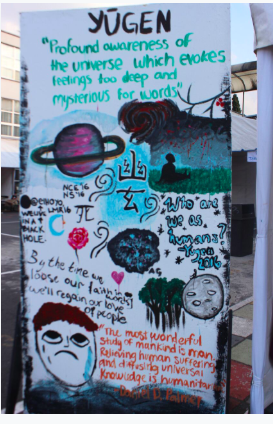 YŪGEN
"Profound awareness of
the universe which evokes
feelings too deep and
mysterious for words"
幽
玄
NCE'16
NS'16
BLACK
HOLE.
π
Who are
we as
humans?
2016
AS
By the time we
loose our faith in
words
we'll regain our love
of people
"The most wonderful
Study of mankind is man.
Relieving human suffering
and diffusing universal
Knowledge is humanitarian"